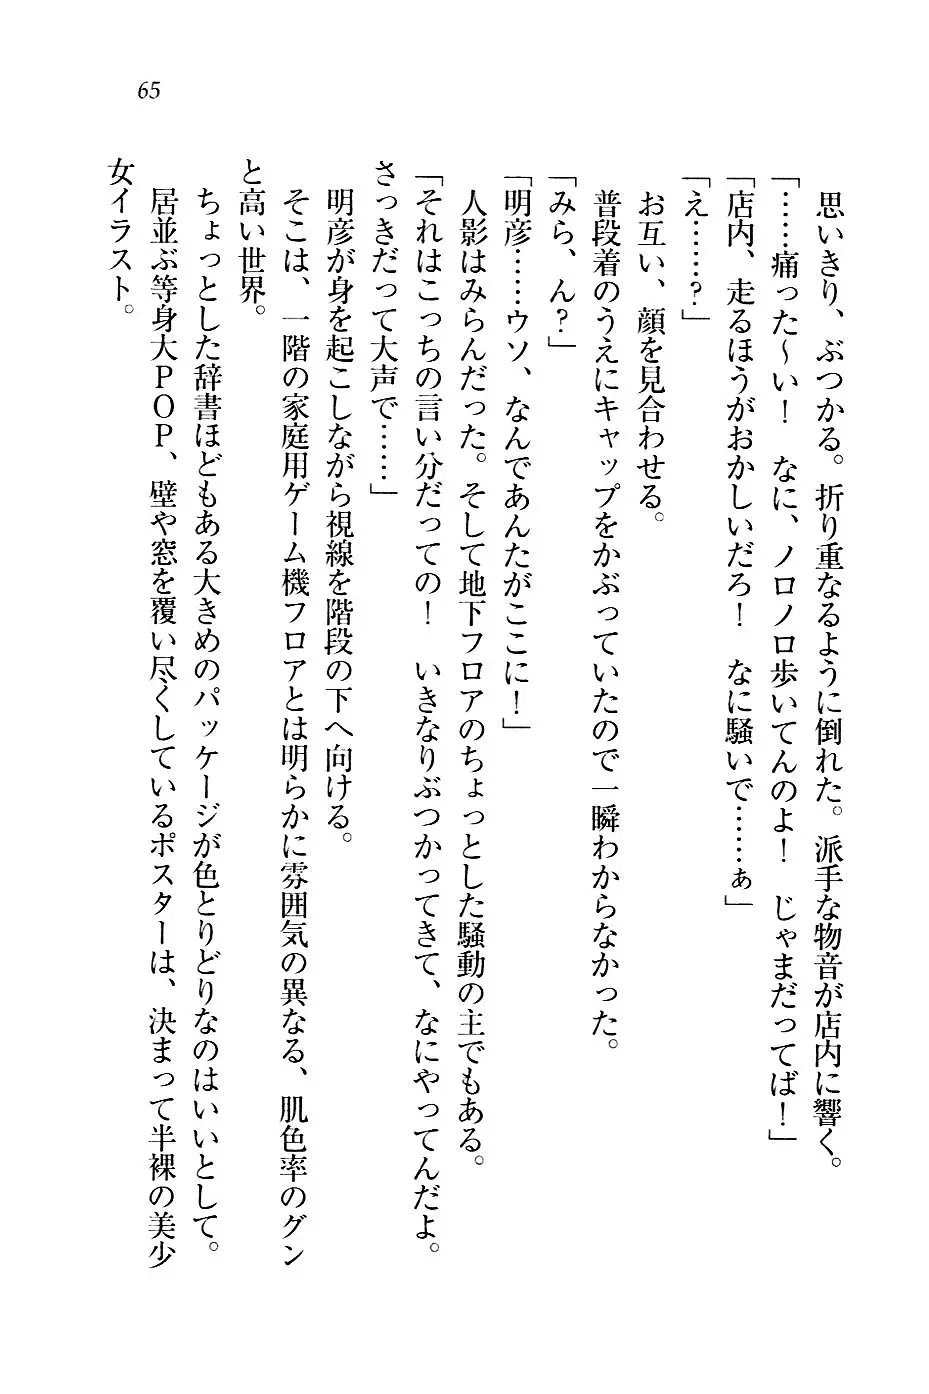 65
思いきり、ぶつかる。折り重なるように倒れた。派手な物音が店内に響く。
「……痛った〜い！　なに、ノロノロ歩いてんのよ！　じゃまだってば！」
「店内、走るほうがおかしいだろ！　なに騒いで……ぁ」
「え……？」
お互い、顔を見合わせる。
普段着のうえにキャップをかぶっていたので一瞬わからなかった。
「みら、ん？」
「明彦……ウソ、なんであんたがここに！」
人影はみらんだった。そして地下フロアのちょっとした騒動の主でもある。
「それはこっちの言い分だっての！　いきなりぶつかってきて、なにやってんだよ。
さっきだって大声で……」
明彦が身を起こしながら視線を階段の下へ向ける。
そこは、一階の家庭用ゲーム機フロアとは明らかに雰囲気の異なる、肌色率のグン
と高い世界。
ちょっとした辞書ほどもある大きめのパッケージが色とりどりなのはいいとして。
居並ぶ等身大ＰＯＰ、壁や窓を覆い尽くしているポスターは、決まって半裸の美少
女イラスト。